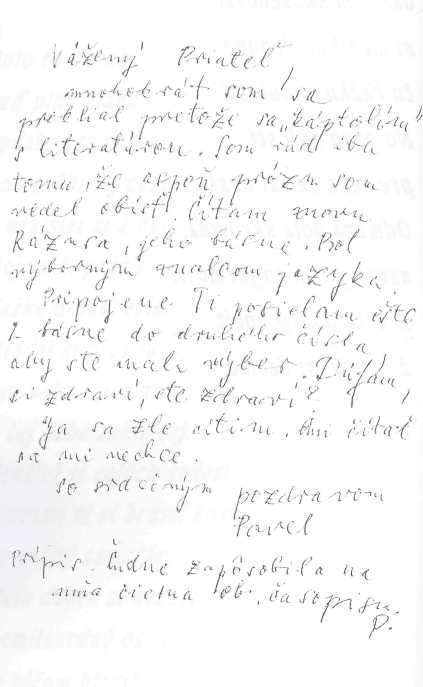 Vážený Priateľ,
mnohokrát som sa
preklial pretože sa „káptolím"
s literatúrou. Som rád iba
tomu, že aspoň prózu som
vedel obísť. Čítam znovu
Rázusa, jeho básne. Bol
výborným znalcom jazyka
Pripojene Ti posielam ešte
2 básne do druhého čísla
aby ste mali výber. Dúfam,
si zdraví, ste zdraví?
Ja sa zle cítim. Ani čítať
sa mi nechce.
so srdečným pozdravom
Pavel
Prípis. Čudne zapôsobila na
mňa čierna ob. časopisu.
P.